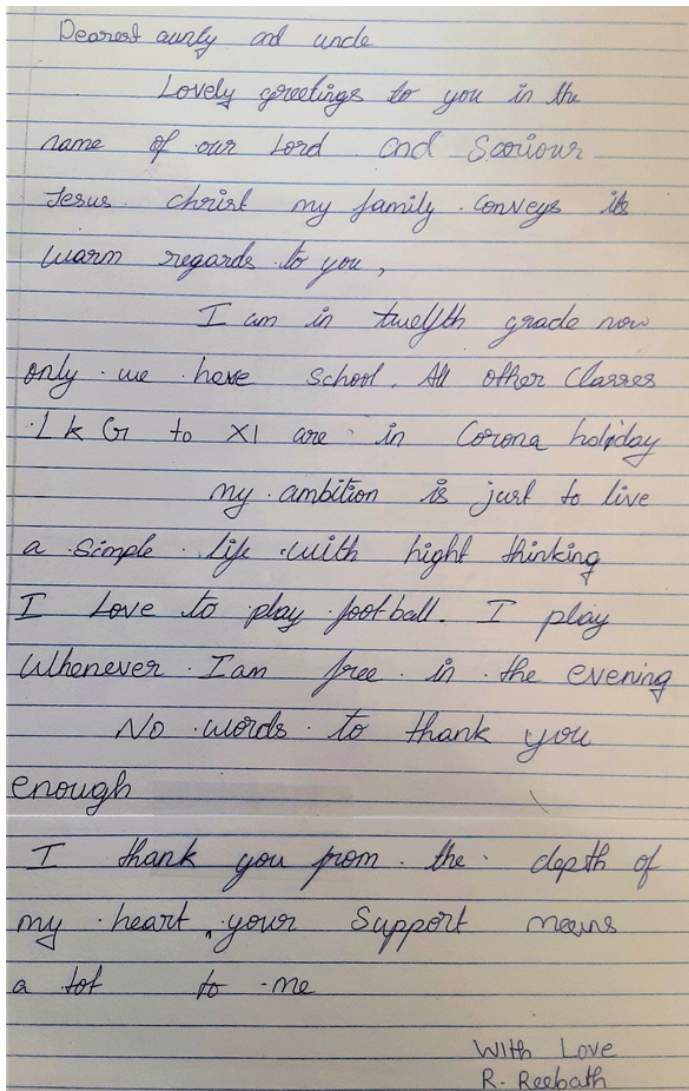 Dearest aunty and uncle
Lovely greetings to you in the
name of our Lord and Saviour
Jesus christ my family conveys its
warm regards to you,
I am in twelfth grade now
only we have school. All other Classes
LkG to XI are in Corona holiday
my ambition is just to live
a simple life with hight thinking
I Love to play football. I play
Whenever I am free in the evening
No words to thank you
enough
I thank you from the depth of
my heart, your Support means
a lot to me
With Love
R. Reebath